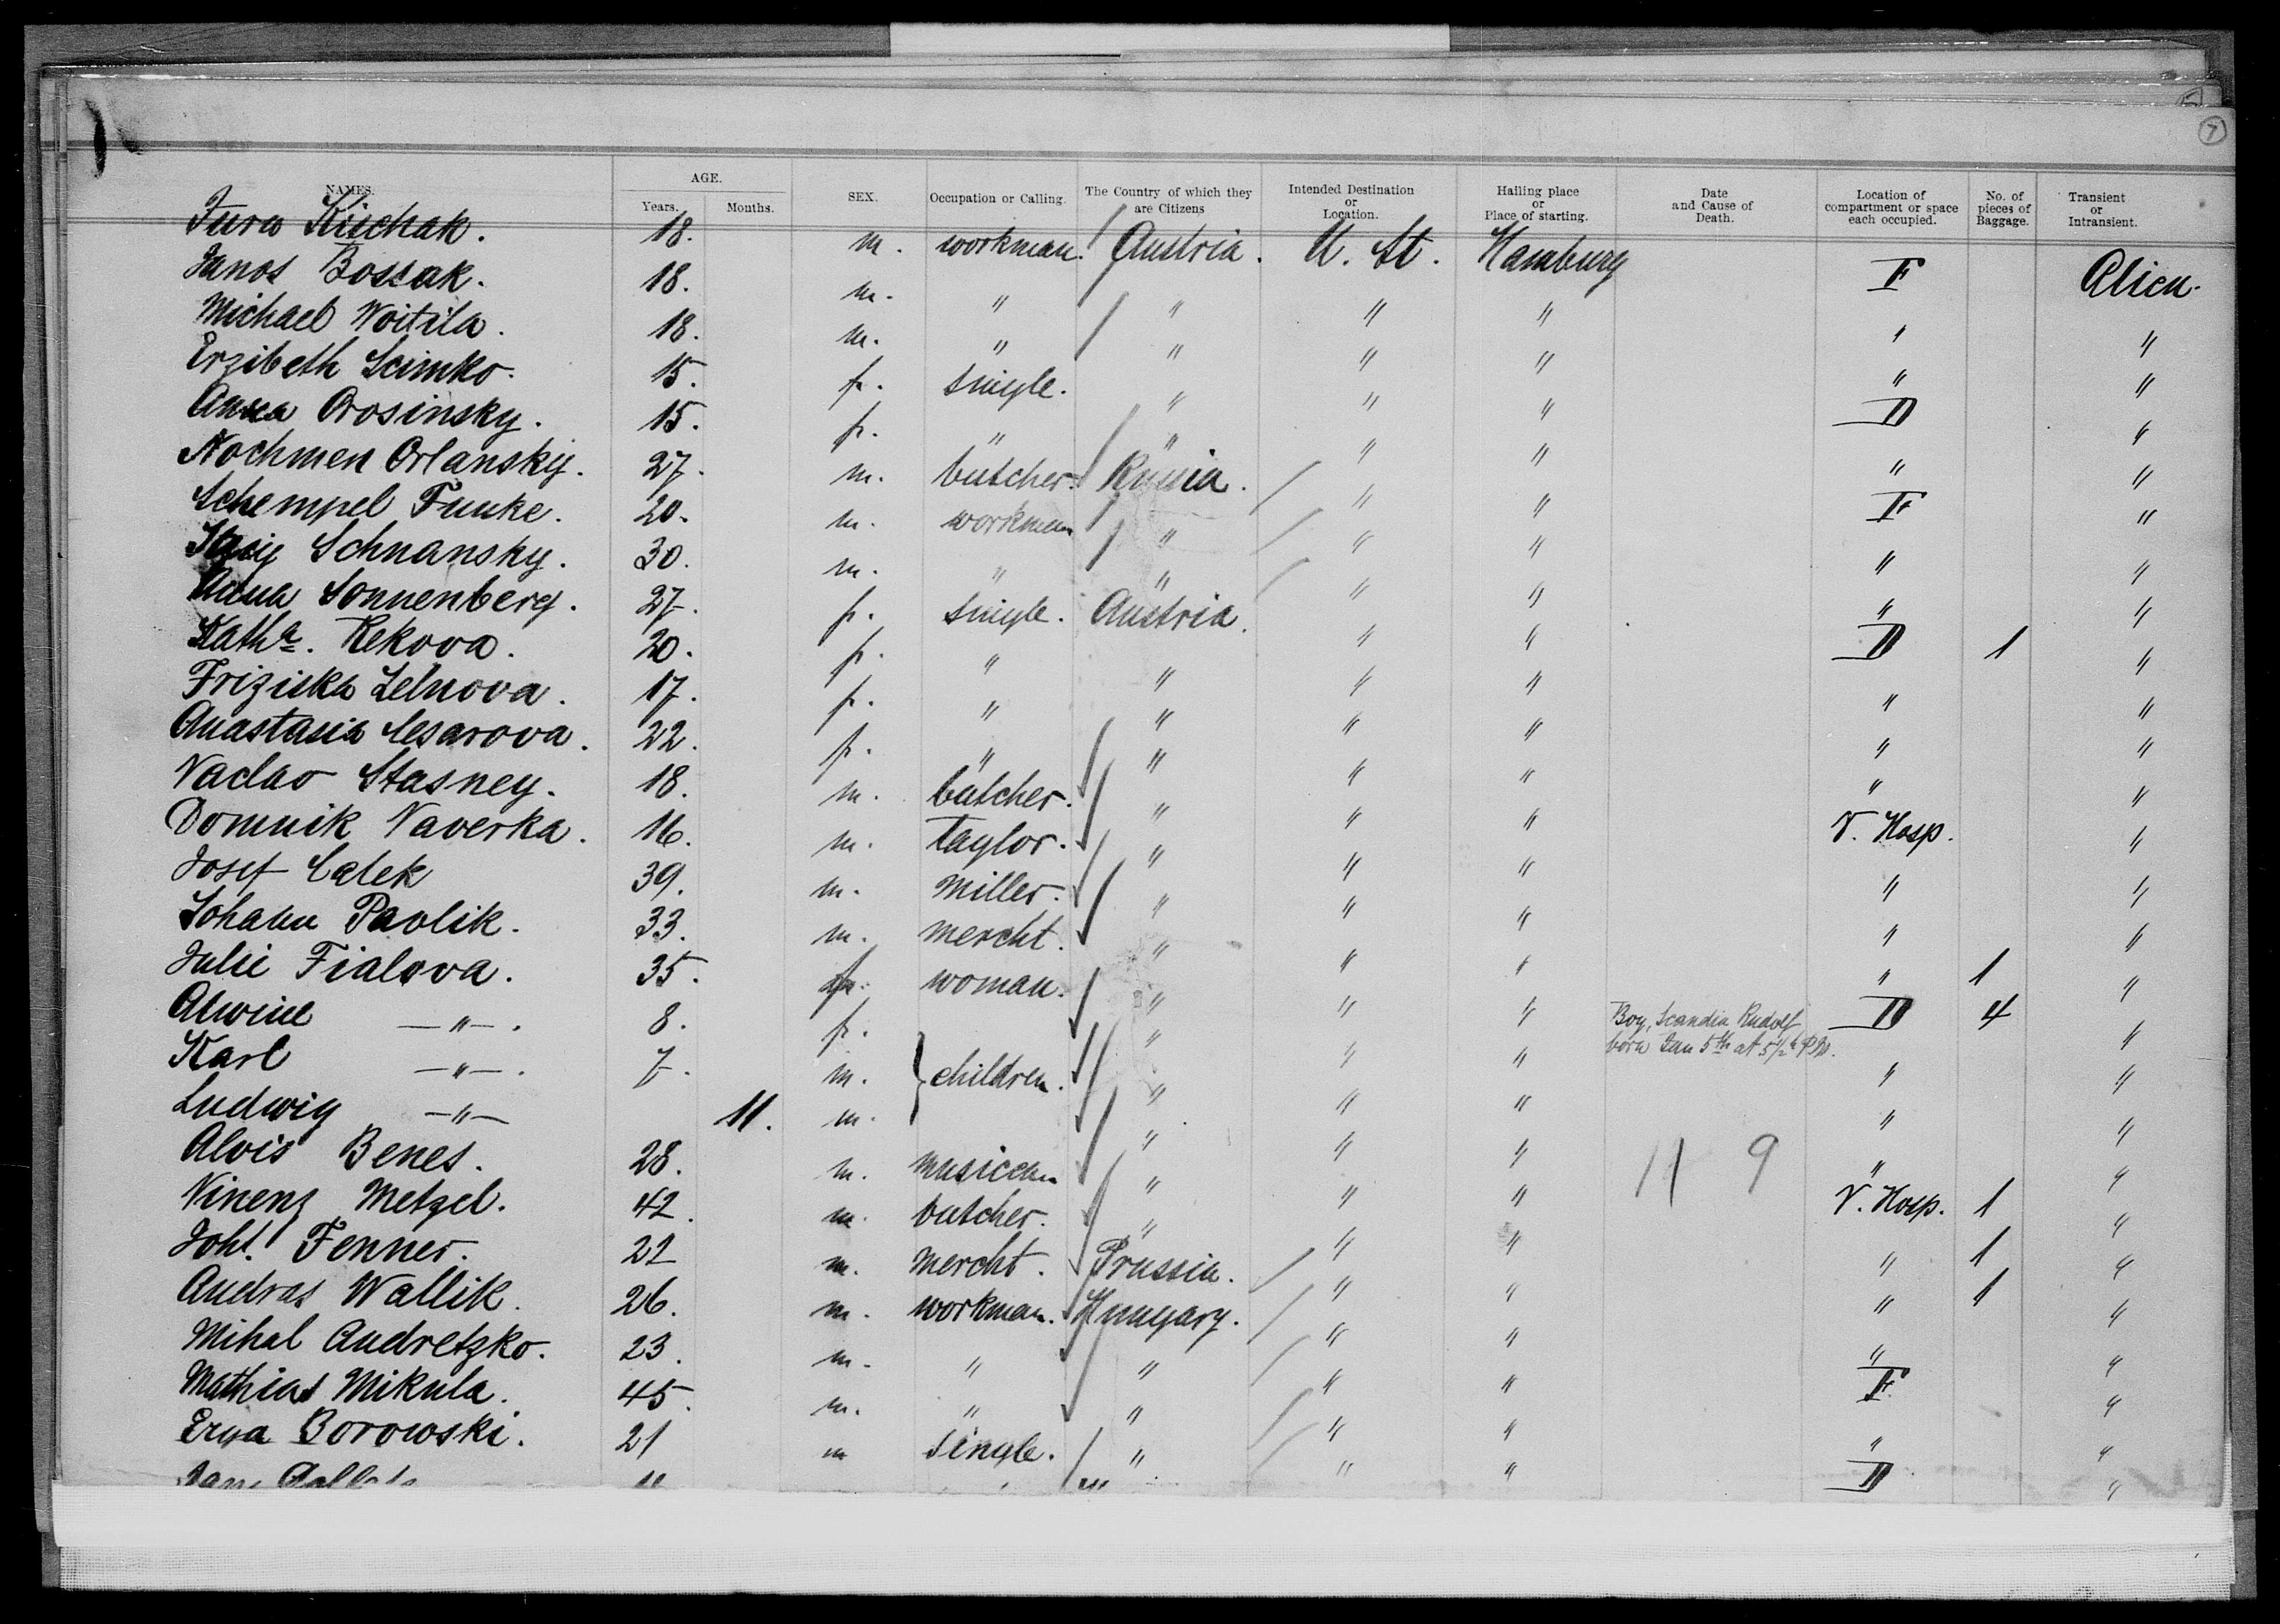 5
7
NAMES. AGE. Years. Months. SEX. Occupation or Calling. The Country of which they are Citizens Intended Destination or Location. Hailing place or Place of starting. Date and Cause of Death. Location of compartment or space each occupied. No. of pieces of Baggage. Transient or Intransient.
Jura Kischak. 18. m. workman. Austria. U. St. Hamburg F Alien.
Janos Bossak. 18. m. " " " " " "
Michael Woitila. 18. m. " " " " " "
Erzibeth Scimko. 15. f. single. " " " D "
Anna Orosinsky. 15. f. " " " " " "
Nochmen Orlansky. 27. m. butcher. Russia. " " F "
Schempel Funke. 20. m. workman " " " " "
Schnansky. 30. m. " " " " " "
Anna Sonnenberg. 27. f. single. Austria. " " D 1 "
Katha. Rekova. 20. f. " " " " " "
Friziska Zelnova. 17. f. " " " " " "
Anastasia Cesarova. 22. f. " " " " " "
Vaclav Stasney. 18. m. butcher. " " " V. Hosp. "
Domnik Naverka. 16. m. taylor. " " " " "
Josef Calek 39. m. miller. " " " " "
Johann Pavlik. 33. m. mercht. " " " " 1 "
Julie Fialova. 35. f. woman. " " " Boy, Scandia Rudolf D 4 "
born Jan 5th at 5 1/2 h P.M.
Alwine —"—. 8. f. " " " " "
Karl —"—. 7. m. } children. " " " " "
Ludwig —"— 11. m. " " " " "
Alois Benes. 28. m. musican " " " 11 9 V. Hosp. 1 "
Vinenz Metzel. 42. m. butcher. " " " " 1 "
Joht. Fenner. 22 m. mercht. Prussia. " " " 1 "
Andras Wallik. 26. m. workman. Hungary. " " " "
Mihal Andretzko. 23. m. " " " " F "
Mathias Mikula. 45. m. " " " " " "
Erna Borowski. 21 m single. " " " D "